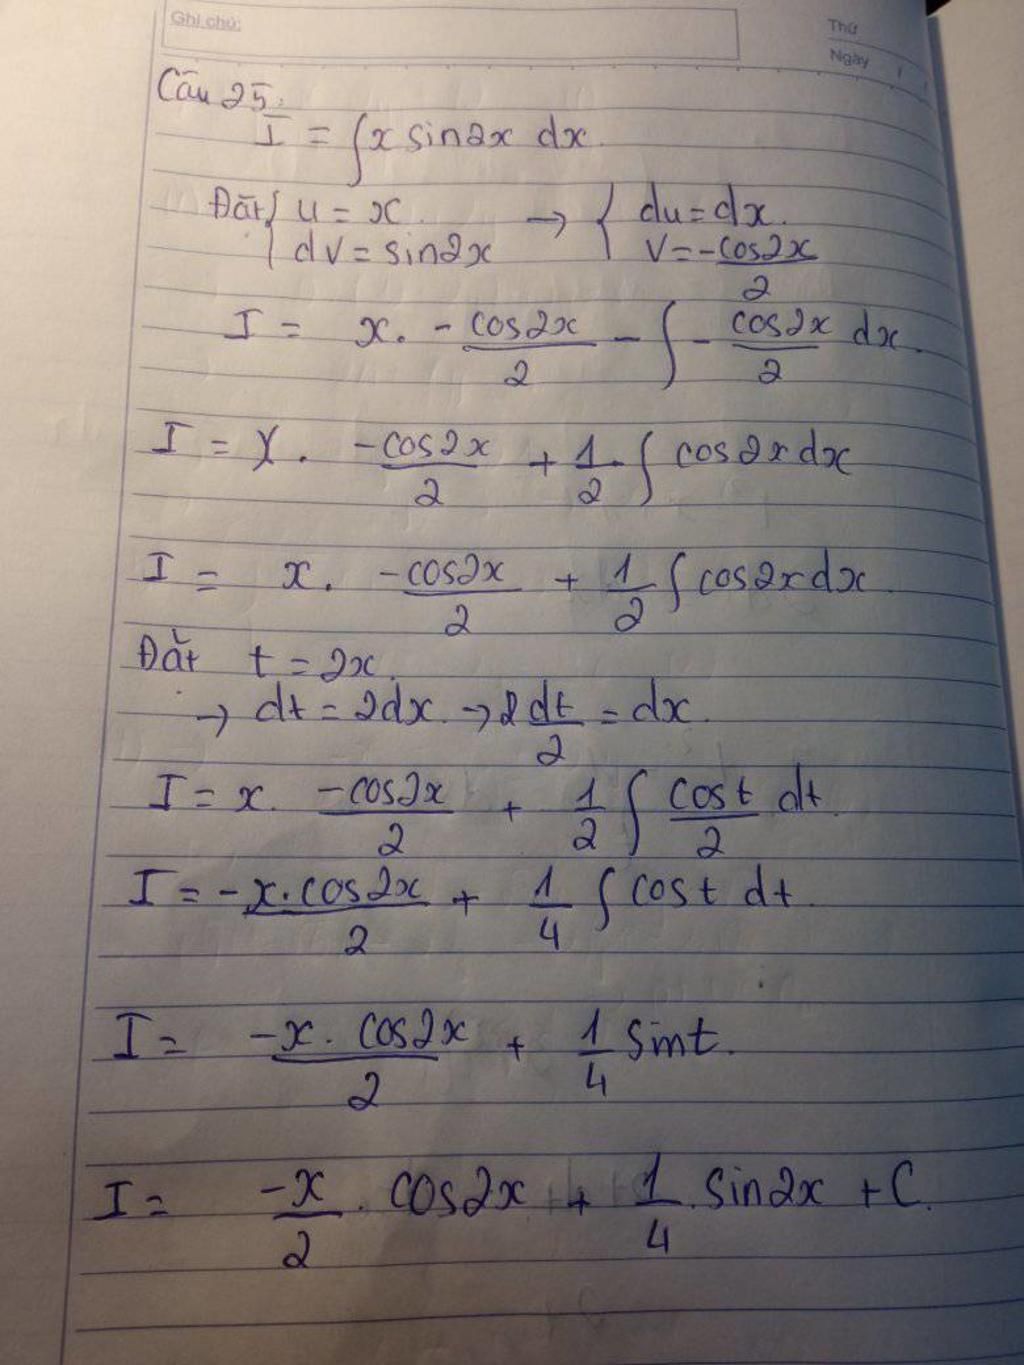 Ghi chú:
Thứ
Ngày /
Câu 25:
I = ∫ x sin2x dx.
Đặt { u = x → { du = dx.
dv = sin2x v = -cos2x/2
I = x. -cos2x/2 - ∫ -cos2x/2 dx.
I = x. -cos2x/2 + 1/2 . ∫ cos2x dx
I = x. -cos2x/2 + 1/2 ∫ cos2x dx
Đặt t = 2x.
→ dt = 2dx → 2 dt/2 = dx.
I = x. -cos2x/2 + 1/2 ∫ cost/2 dt
I = -x.cos2x/2 + 1/4 ∫ cost dt.
I = -x.cos2x/2 + 1/4 sint.
I = -x/2 . cos2x + 1/4 . sin2x + C.